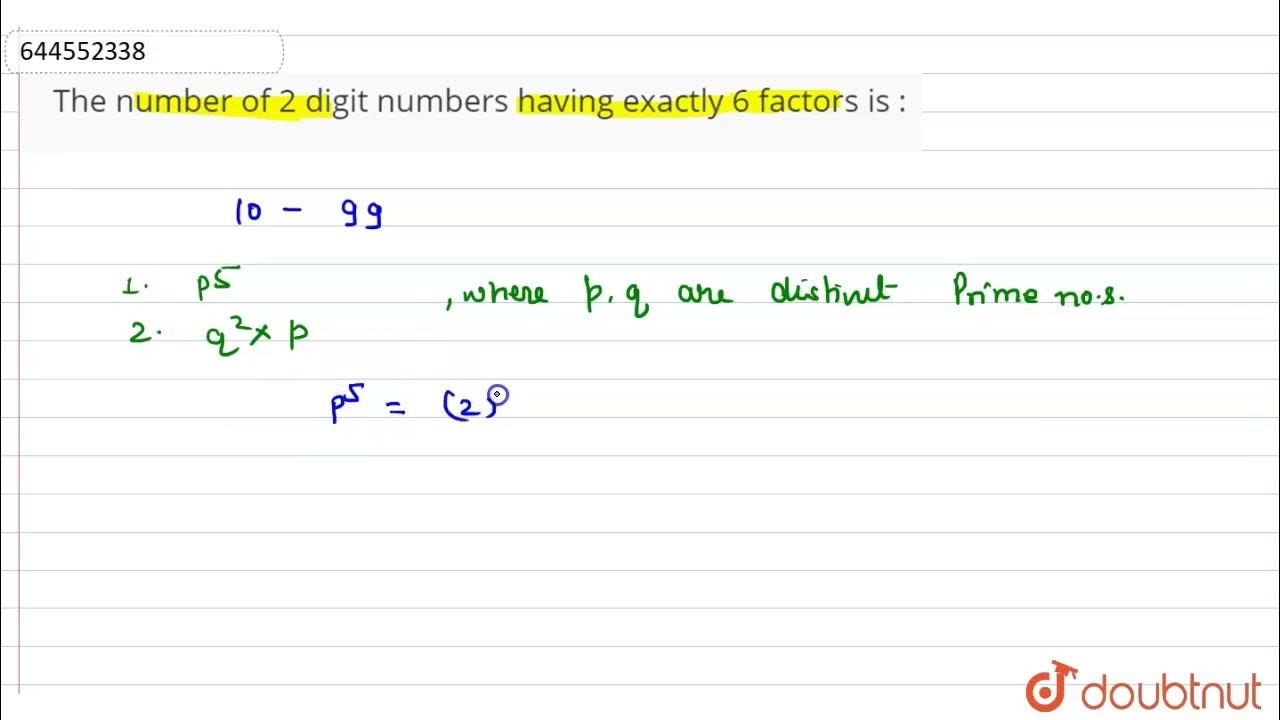 644552338
The number of 2 digit numbers having exactly 6 factors is :
10 - 99
1. p5
, where p, q are distinct Prime no.s.
2. q² × p
p5 = (2)
doubtnut